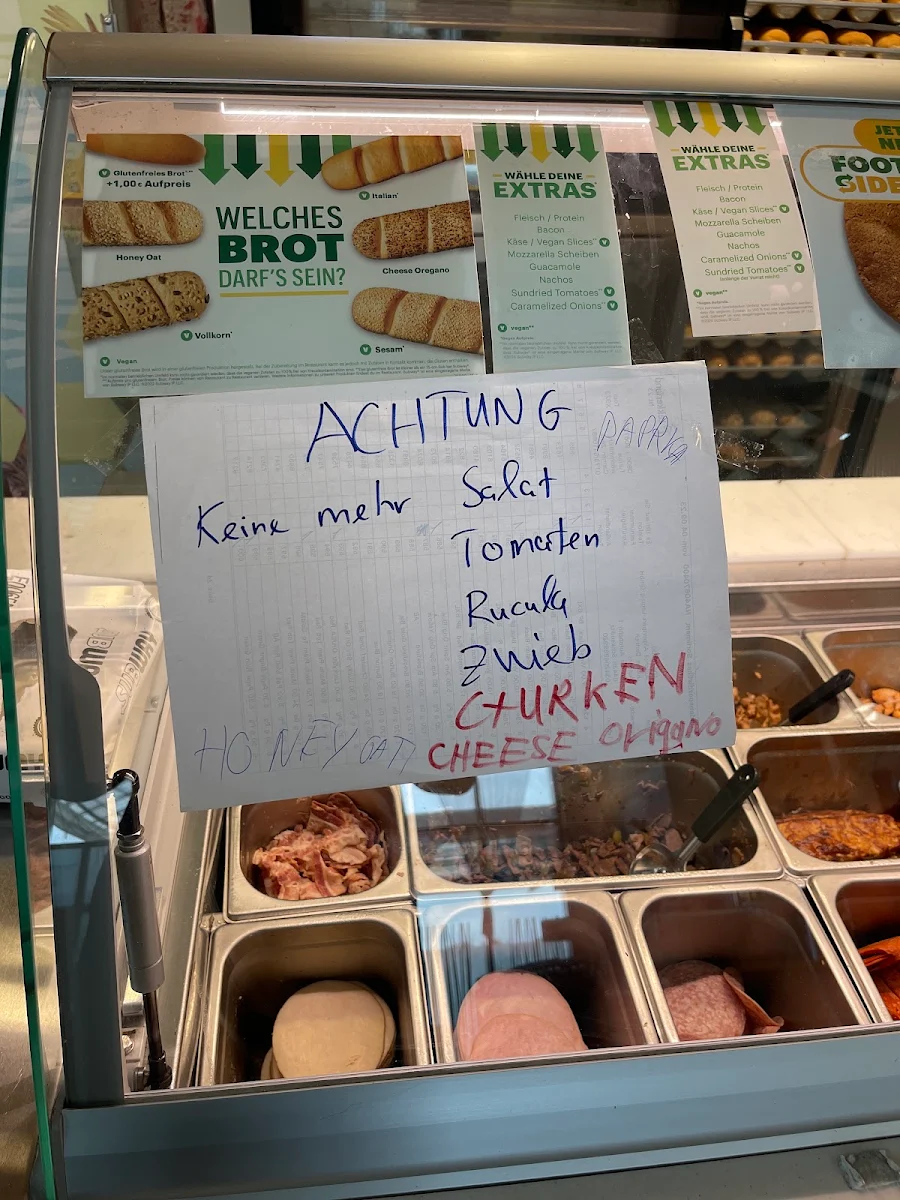 Glutenfreies Brot
+1,00€ Aufpreis
Honey Oat
Vollkorn
Vegan
WELCHES
BROT
DARF'S SEIN?
Italian
Cheese Oregano
Sesam
WÄHLE DEINE
EXTRAS
Fleisch / Protein
Bacon
Käse / Vegan Slices
Mozzarella Scheiben
Guacamole
Nachos
Sundried Tomatoes
Caramelized Onions
vegan
WÄHLE DEINE
EXTRAS
Fleisch / Protein
Bacon
Käse / Vegan Slices
Mozzarella Scheiben
Guacamole
Nachos
Caramelized Onions
Sundried Tomatoes
vegan
FOOT
SIDE
ACHTUNG
PAPRIKA
Keine mehr Salat
Tomaten
Rucula
Zwieb
GURKEN
HONEY OAT CHEESE Origano